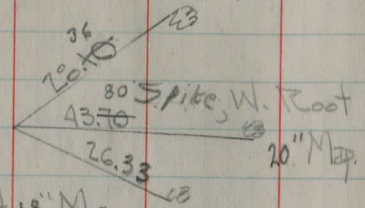 36
20.10
80
Spike, W. Root
43.70
20" Map.
26.33
18" M